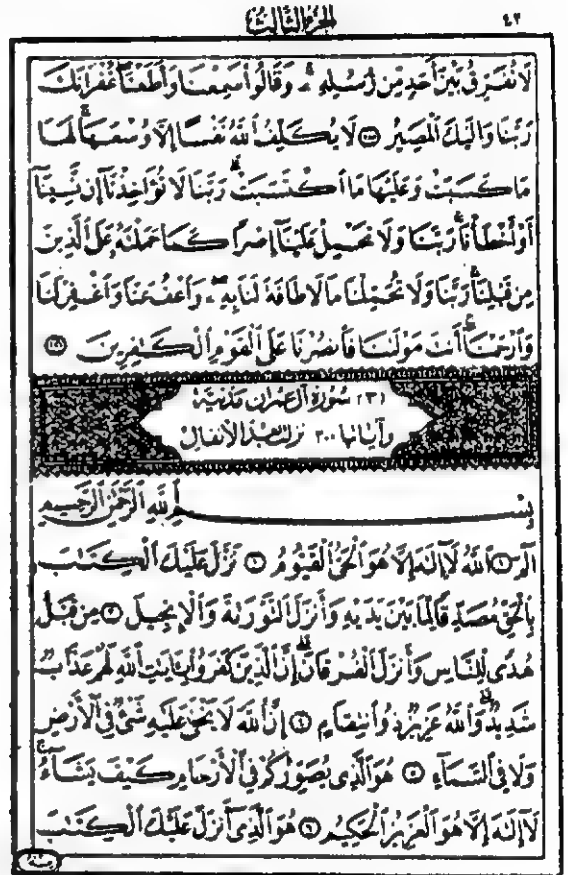 الجزء الثالث
٤٢
لَا نُفَرِّقُ بَيْنَ أَحَدٍ مِّن رُّسُلِهِۦ ۚ وَقَالُوا۟ سَمِعْنَا وَأَطَعْنَا ۖ غُفْرَانَكَ
رَبَّنَا وَإِلَيْكَ ٱلْمَصِيرُ ﴿٢٨٥﴾ لَا يُكَلِّفُ ٱللَّهُ نَفْسًا إِلَّا وُسْعَهَا ۚ لَهَا
مَا كَسَبَتْ وَعَلَيْهَا مَا ٱكْتَسَبَتْ ۗ رَبَّنَا لَا تُؤَاخِذْنَآ إِن نَّسِينَآ
أَوْ أَخْطَأْنَا ۚ رَبَّنَا وَلَا تَحْمِلْ عَلَيْنَآ إِصْرًا كَمَا حَمَلْتَهُۥ عَلَى ٱلَّذِينَ
مِن قَبْلِنَا ۚ رَبَّنَا وَلَا تُحَمِّلْنَا مَا لَا طَاقَةَ لَنَا بِهِۦ ۖ وَٱعْفُ عَنَّا وَٱغْفِرْ لَنَا
وَٱرْحَمْنَآ ۚ أَنتَ مَوْلَىٰنَا فَٱنصُرْنَا عَلَى ٱلْقَوْمِ ٱلْكَٰفِرِينَ ﴿٢٨٦﴾
(٣) سُورَةِ آلِ عِمْرَان مَدَنِيَّة
وآياتها ٢٠٠ نزلت بعد الأنفال
بِسْمِ ٱللَّهِ ٱلرَّحْمَٰنِ ٱلرَّحِيمِ
الٓمٓ ﴿١﴾ ٱللَّهُ لَآ إِلَٰهَ إِلَّا هُوَ ٱلْحَىُّ ٱلْقَيُّومُ ﴿٢﴾ نَزَّلَ عَلَيْكَ ٱلْكِتَٰبَ
بِٱلْحَقِّ مُصَدِّقًا لِّمَا بَيْنَ يَدَيْهِ وَأَنزَلَ ٱلتَّوْرَىٰةَ وَٱلْإِنجِيلَ ﴿٣﴾ مِن قَبْلُ
هُدًى لِّلنَّاسِ وَأَنزَلَ ٱلْفُرْقَانَ ۗ إِنَّ ٱلَّذِينَ كَفَرُوا۟ بِـَٔايَٰتِ ٱللَّهِ لَهُمْ عَذَابٌ
شَدِيدٌ ۗ وَٱللَّهُ عَزِيزٌ ذُو ٱنتِقَامٍ ﴿٤﴾ إِنَّ ٱللَّهَ لَا يَخْفَىٰ عَلَيْهِ شَىْءٌ فِى ٱلْأَرْضِ
وَلَا فِى ٱلسَّمَآءِ ﴿٥﴾ هُوَ ٱلَّذِى يُصَوِّرُكُمْ فِى ٱلْأَرْحَامِ كَيْفَ يَشَآءُ ۚ
لَآ إِلَٰهَ إِلَّا هُوَ ٱلْعَزِيزُ ٱلْحَكِيمُ ﴿٦﴾ هُوَ ٱلَّذِىٓ أَنزَلَ عَلَيْكَ ٱلْكِتَٰبَ